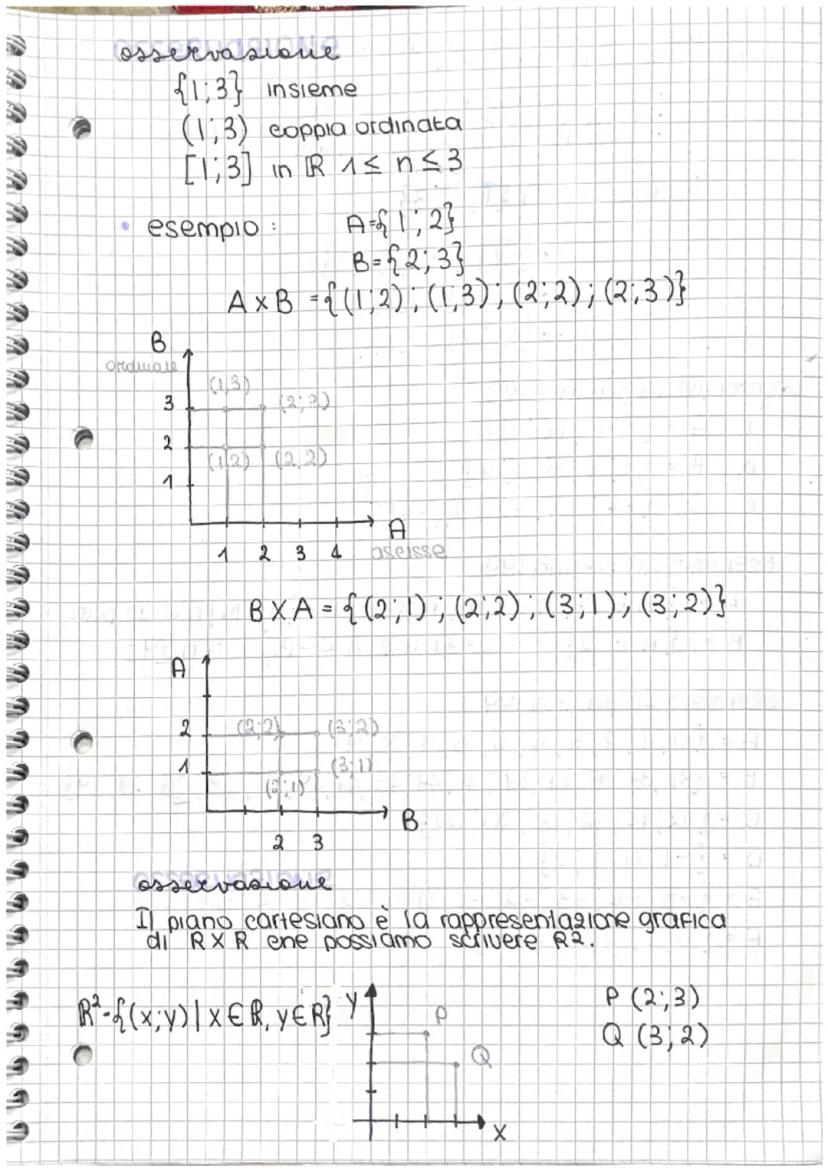 osservazione
{1;3} insieme
(1;3) coppia ordinata
[1;3] in ℝ 1 ≤ n ≤ 3
• esempio : A={1;2}
B={2;3}
A x B = {(1;2);(1;3);(2;2);(2;3)}
B
ordinate
(1,3)
3 (2;3)
2
(1,2) (2,2)
1
A
1 2 3 4 ascisse
B X A = {(2;1);(2;2);(3;1);(3;2)}
A
2 (2;2) (3;2)
1 (3;1)
(2;1)
B
2 3
osservazione
Il piano cartesiano è la rappresentazione grafica
di R X R che possiamo scrivere R2.
ℝ²={(x;y)| x ∈ ℝ, y ∈ ℝ} Y P (2;3)
P
Q (3;2)
Q
X